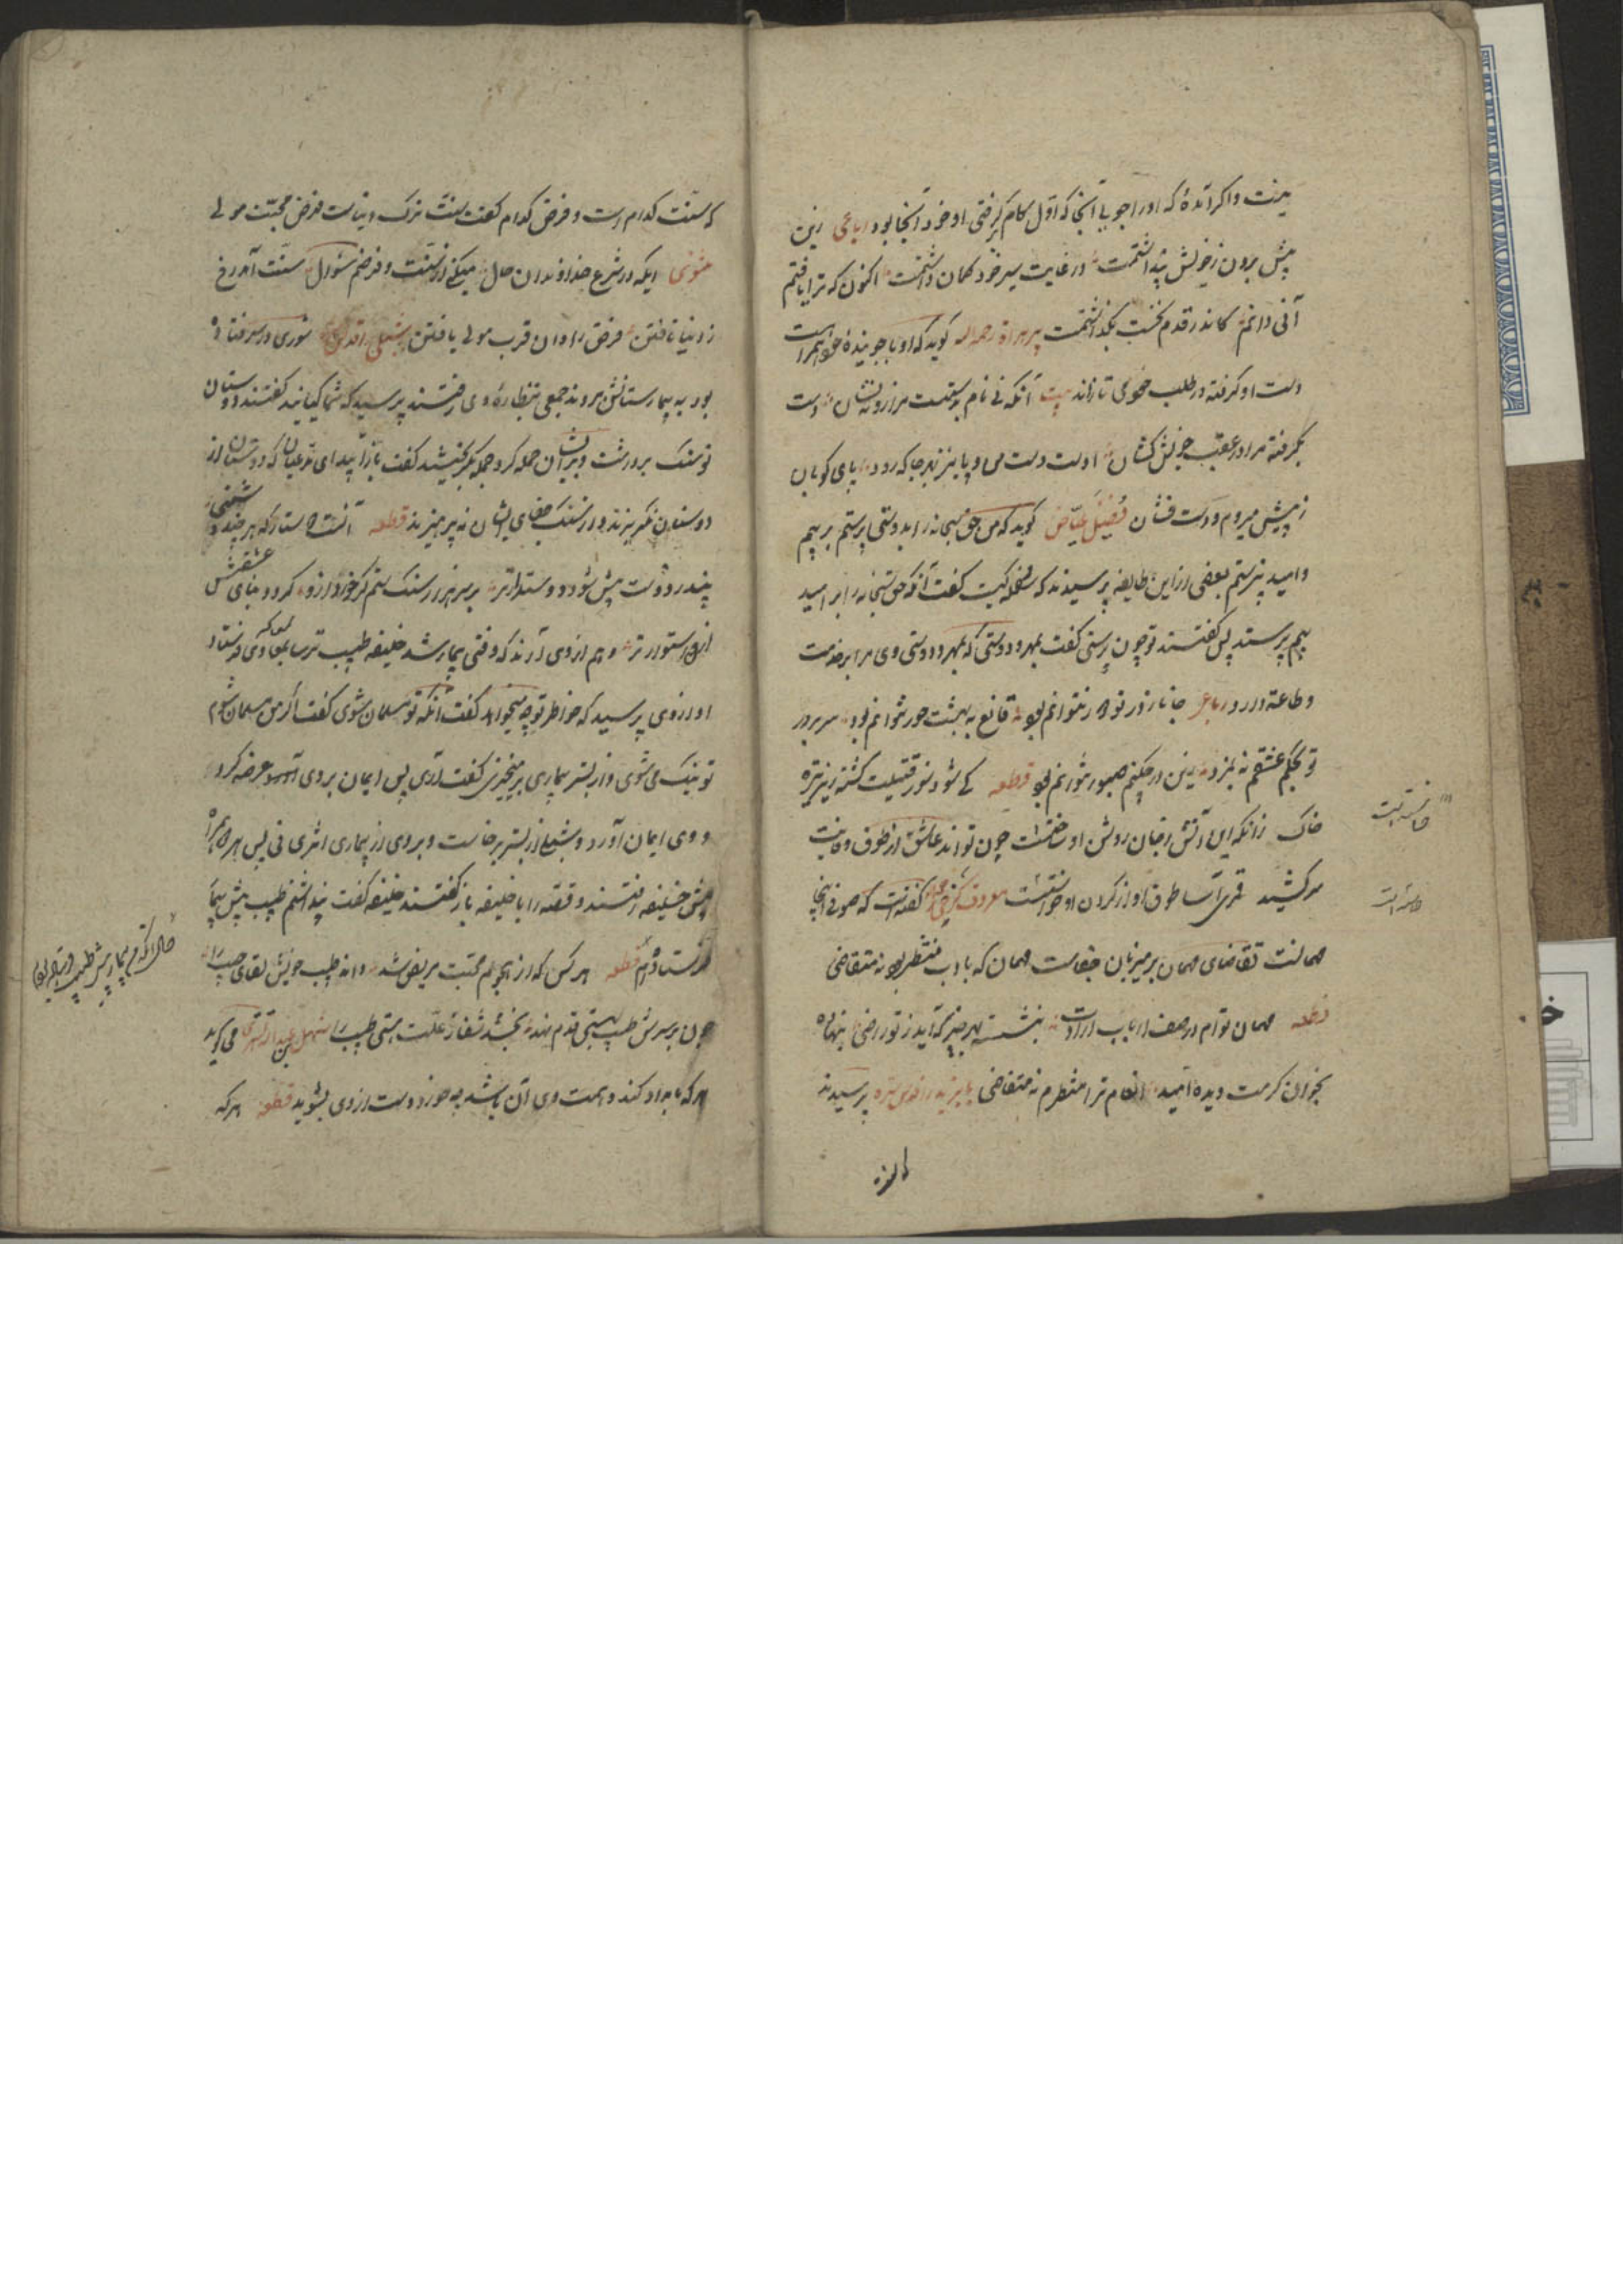 بدنت و اکر آنده که او را جویی آنجا که اول کام گرفتی او خود آنجا بود رباعی زین
پیش برون زخویش پنداشتمت در غایت سیر خود کمان داشتمت اکنون که ترا یافتم
آنی دانم کاندر قدم نخست بگذاشتمت پیر هراة رحمه الله گوید که او با جوینده خود همراهست
دست او گرفته در طلب خود می تازاند بیت آنکه نی نام بدستست مرا زو نه نشان دست
بگرفته مرا در عقب خویش کشان اوست دست من و پا نیز بهر جا که رود پای کوبان
زپیش میروم و دست فشان فضیل عیاض گوید که من حق سبحانه را بدوستی پرستم بر بیم
و امید نپرستم بعضی از این طایفه پرسیدند که سفله کیست گفت آنکه حق سبحانه را بر امید
بیم پرستد پس گفتند تو چون پرستی گفت بمهر و دوستی که مهر و دوستی وی مرا بر خدمت
و طاعة دارد رباعی جانا ز در تو دور نتوانم بود قانع به بهشت و حور نتوانم بود سر بر در
تو بحکم عشقم نه بمزد زین در چکنم صبور نتوانم بود قطعه کی شود نور قتیلت کشته زیر تیره
خاک زانکه این آتش ز جان روشن او خاستست چون تواند عاشق از طوق وفایت
سر کشید قمری آسا طوق او از گردن او خاستست معروف کرخی گفته است که صوفی اینجا
مهمانست تقاضای مهمان بر میزبان جفاست مهمان که با ادب منتظر بود نه متقاضی
قطعه مهمان توام در صف ارباب ارادت بنشسته بهر چیز که آید ز تو راضی بنهاده
بخوان کرمت دیده امید انعام ترا منتظرم نه متقاضی بایزید را قدس سره پرسیدند
که سنت
که سنت کدام است و فرض کدام گفت سنت ترک دنیاست فرض محبت مولی
مثنوی ایکه در شرع خداوندان حال میکنی از سنت و فرضم سؤال سنت آمد رخ
ز دنیا تافتن فرض راه وان قرب مولی یافتن شبلی را قدس سره شوری در سر افتاد
بود به بیمارستانش بردند جمعی بنظاره وی رفتند پرسید که شما کیانید گفتند دوستان
تو سنگ برداشت و بر ایشان حمله کرد جمله بگریختند گفت باز آیید ای مدعیان که دوستان از
دوستان نگریزند و از سنگ جفای ایشان نپرهیزند قطعه آنست دوستدار که هر چند دشمنی
بیند ز دوست پیش شود دوستدارتر بر سر هزار سنگ ستم گر خورد ازو گردد بنای عشقش
ازان استوارتر و هم از وی آرند که وقتی بیمار شد خلیفه طبیب ترسا بمعالجه وی فرستاد
او از وی پرسید که خاطر تو چه میخواهد گفت آنکه تو مسلمان شوی گفت اگر من مسلمان شوم
تو نیک می شوی و از بستر بیماری بر میخیزی گفت آری پس ایمان بر وی عرضه کرد
و وی ایمان آورد و شبلی از بستر برخاست و بر وی از بیماری اثری نی پس هر دو همراه
پیش خلیفه رفتند و قصه را با خلیفه باز گفتند خلیفه گفت پنداشتم طبیب پیش بیمار
فرستاده ام قطعه هر کس که از هجوم محبت مریض شد داند طبیب خویش لقای حبیب را
چون بر سرش طبیب بهستی قدم نهد بخشد شفا ز علت هستی طبیب را سهل بن عبد الله تستری می گوید
هر که بامداد کند و همت وی آن باشد چه خورد دست از وی بشویید قطعه هر که
خاستست
خاستست